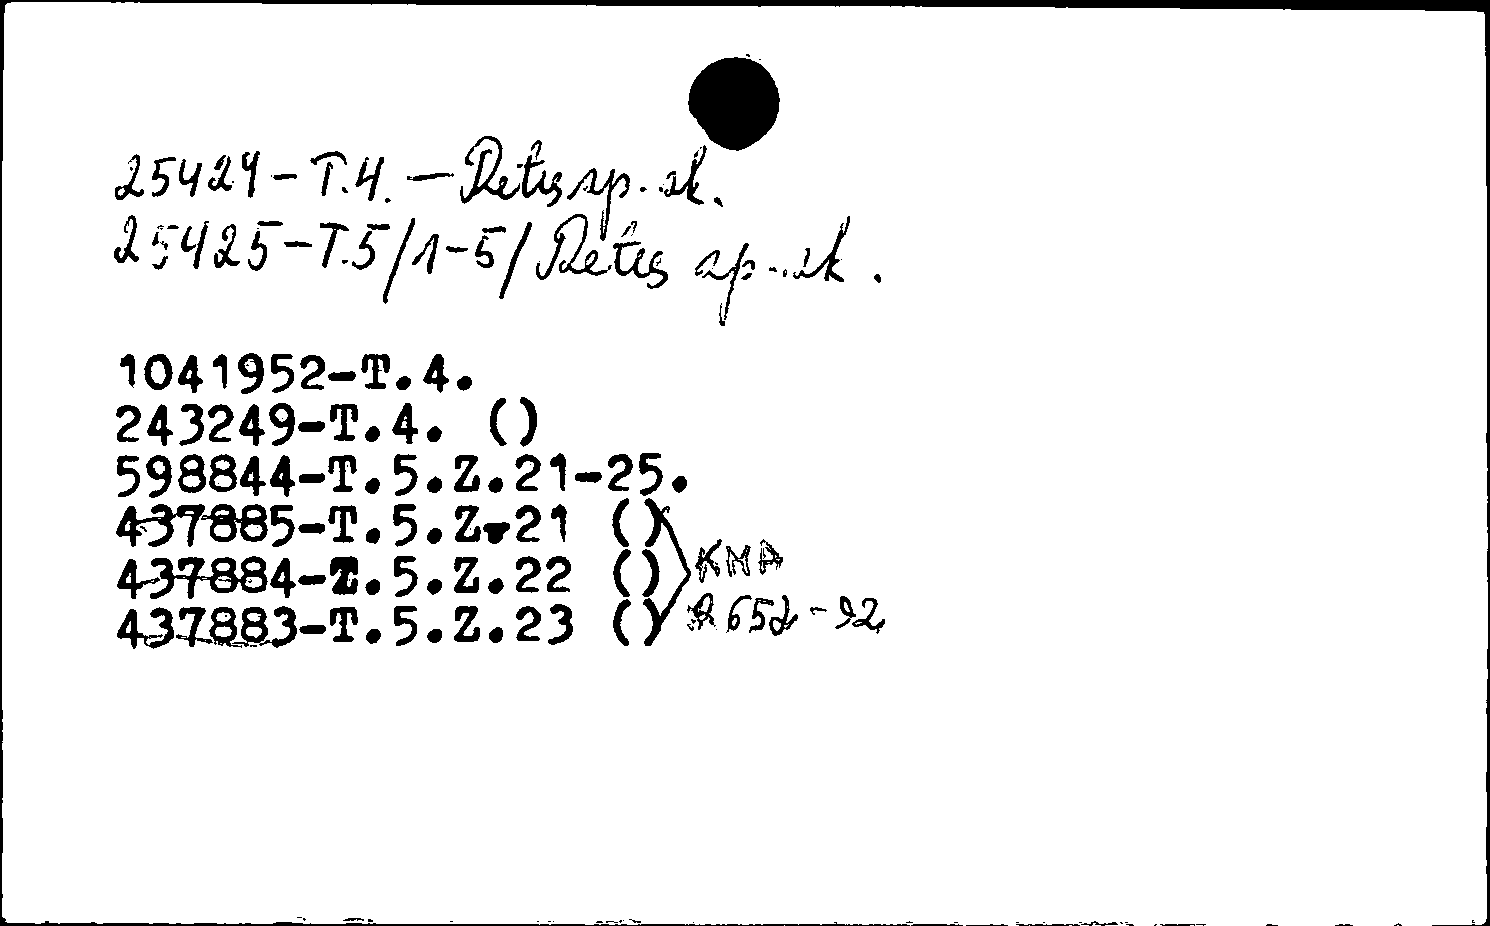 25424-T.4. - Retųsp. sk.
25425-T.5/1-5/ Retųs sp. sk.
1041952-T.4.
243249-T.4. ()
598844-T.5.Z.21-25.
437885-T.5.Z.21 ()
437884-T.5.Z.22 () KMA
437883-T.5.Z.23 () 2652-92